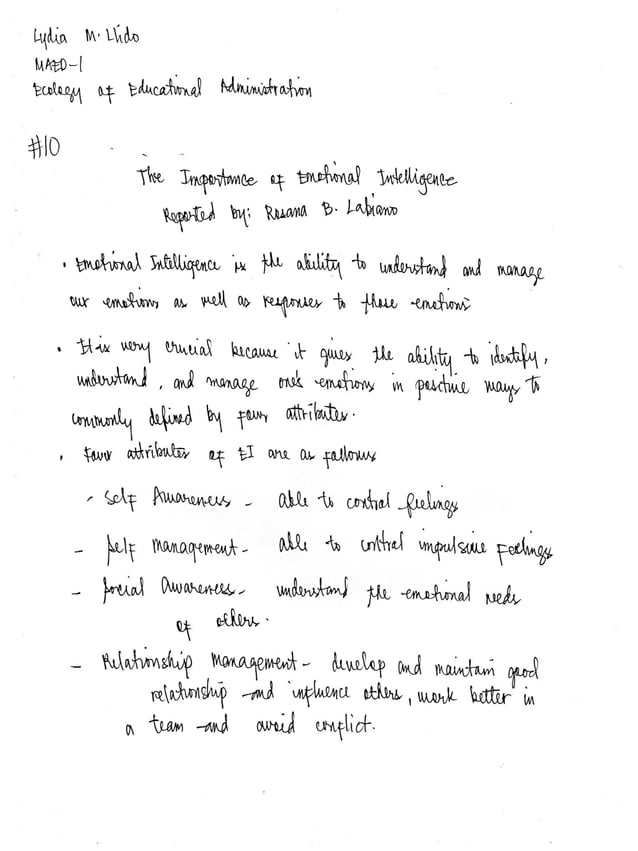 Lydia M. Llido
MAED-1
Ecology of Educational Administration
#10
The Importance of Emotional Intelligence
Reported by: Rosana B. Labiano
• Emotional Intelligence is the ability to understand and manage
our emotions as well as responses to those emotions
• It is very crucial because it gives the ability to identify,
understand, and manage one's emotions in positive ways to
commonly defined by four attributes.
• Four attributes of EI are as follows
- Self Awareness - able to control feelings
- Self Management - able to control impulsive feelings
- Social Awareness - understand the emotional needs
of others.
- Relationship Management - develop and maintain good
relationship and influence others, work better in
a team and avoid conflict.